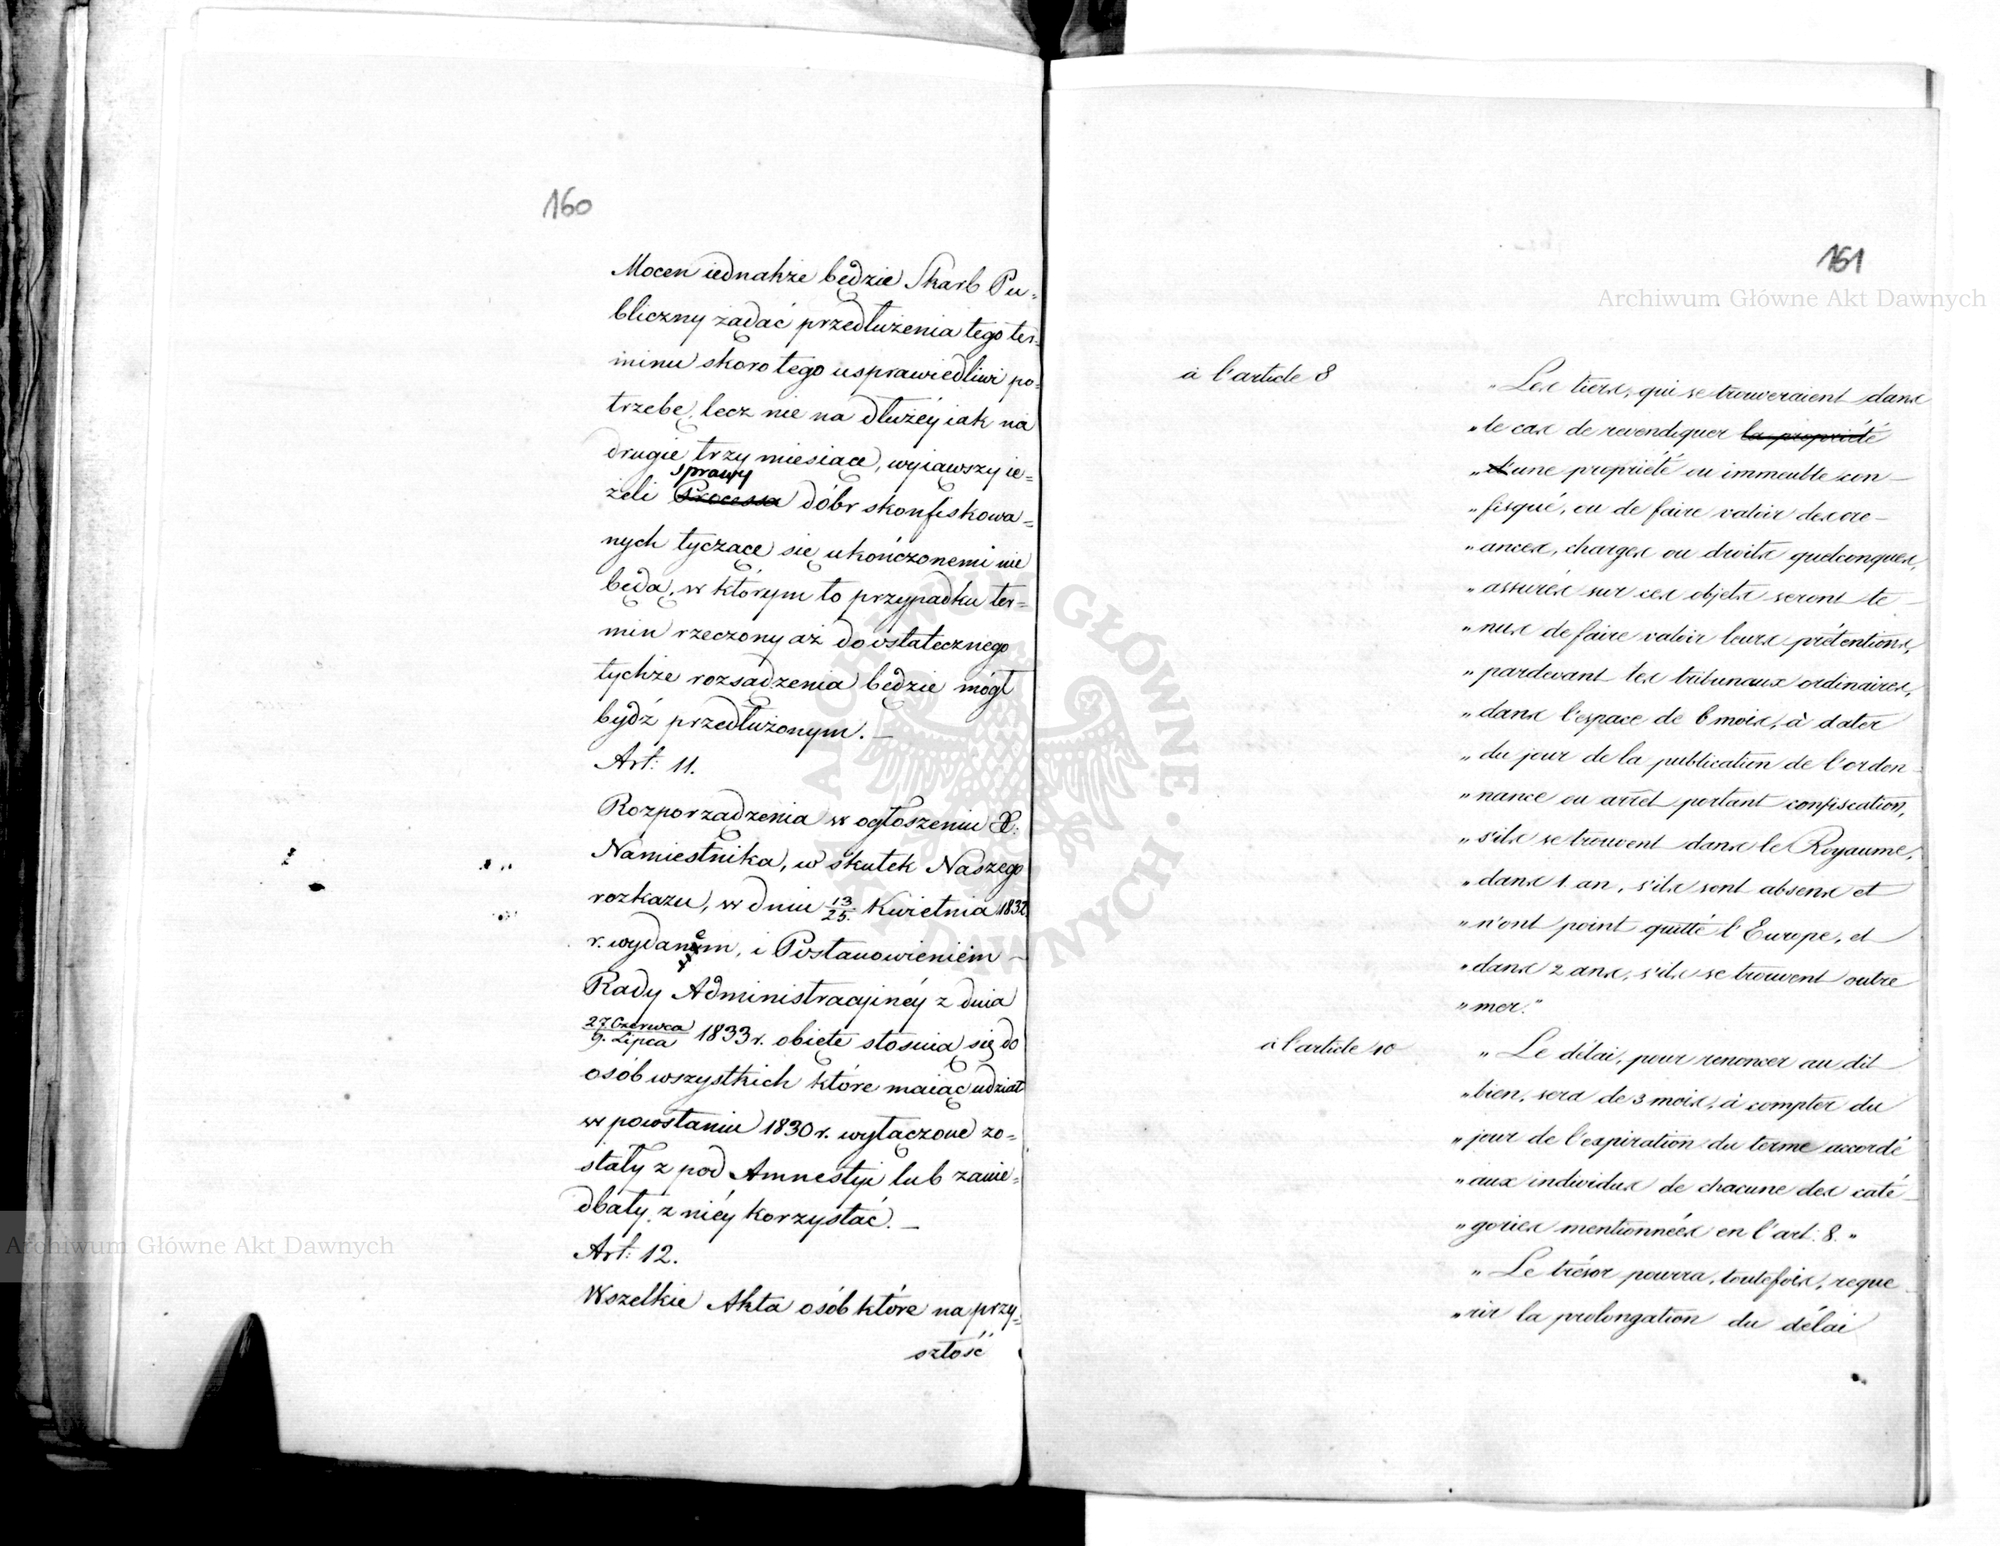 160
Mocen iednakże będzie Skarb Pu=
bliczny żądać przedłużenia tego ter=
minu skoro tego usprawiedliwi po=
trzebę, lecz nie na dłużéy iak na
drugie trzy miesiące, wyiąwszy ie=
sprawy
żeli Processa dóbr skonfiskowa=
nych tyczące się ukończonemi nie
będą, w którym to przypadku ter=
min rzeczony aż do ostatecznego
tychże rozsądzenia będzie mógł
bydź przedłużonym. —
Art: 11.
Rozporządzenia w ogłoszeniu X:
Namiestnika, w skutek Naszego
rozkazu, w dniu 13/25 Kwietnia 1832
r. wydanem, i Postanowieniem —
Rady Administracyinéy z dnia
27. Czerwca/9. Lipca 1833 r. obięte stosuią się do
osób wszystkich które maiąc udział
w powstaniu 1830 r. wyłączone zo=
stały z pod Amnestyi lub zanie=
dbały z niéy korzystać. —
Art: 12.
Wszelkie Akta osób które na przy=
szłość
161
Archiwum Główne Akt Dawnych
à l'article 8
„Les tiers, qui se trouveraient dans
„le cas de revendiquer la propriété
„d'une propriété ou immeuble con—
„fisqué, ou de faire valoir des cré—
„ances, charges ou droits quelconques,
„assurés sur ces objets seront te—
„nus de faire valoir leurs prétentions,
„pardevant les tribunaux ordinaires,
„dans l'espace de 6 mois, à dater
„du jour de la publication de l'ordon—
„nance ou arrêt portant confiscation,
„s'ils se trouvent dans le Royaume,
„dans 1 an, s'ils sont absens et
„n'ont point quitté l'Europe, et
„dans 2 ans, s'ils se trouvent outre
„mer."
à l'article 10
„Le délai, pour renoncer au dit
„bien, sera de 3 mois, à compter du
„jour de l'expiration du terme accordé
„aux individus de chacune des caté—
„gories mentionnées en l'art: 8."
„Le trésor pourra, toutefois, reque—
„rir la prolongation du délai
Archiwum Główne Akt Dawnych
ARCHIWUM GŁÓWNE · AKT DAWNYCH ·